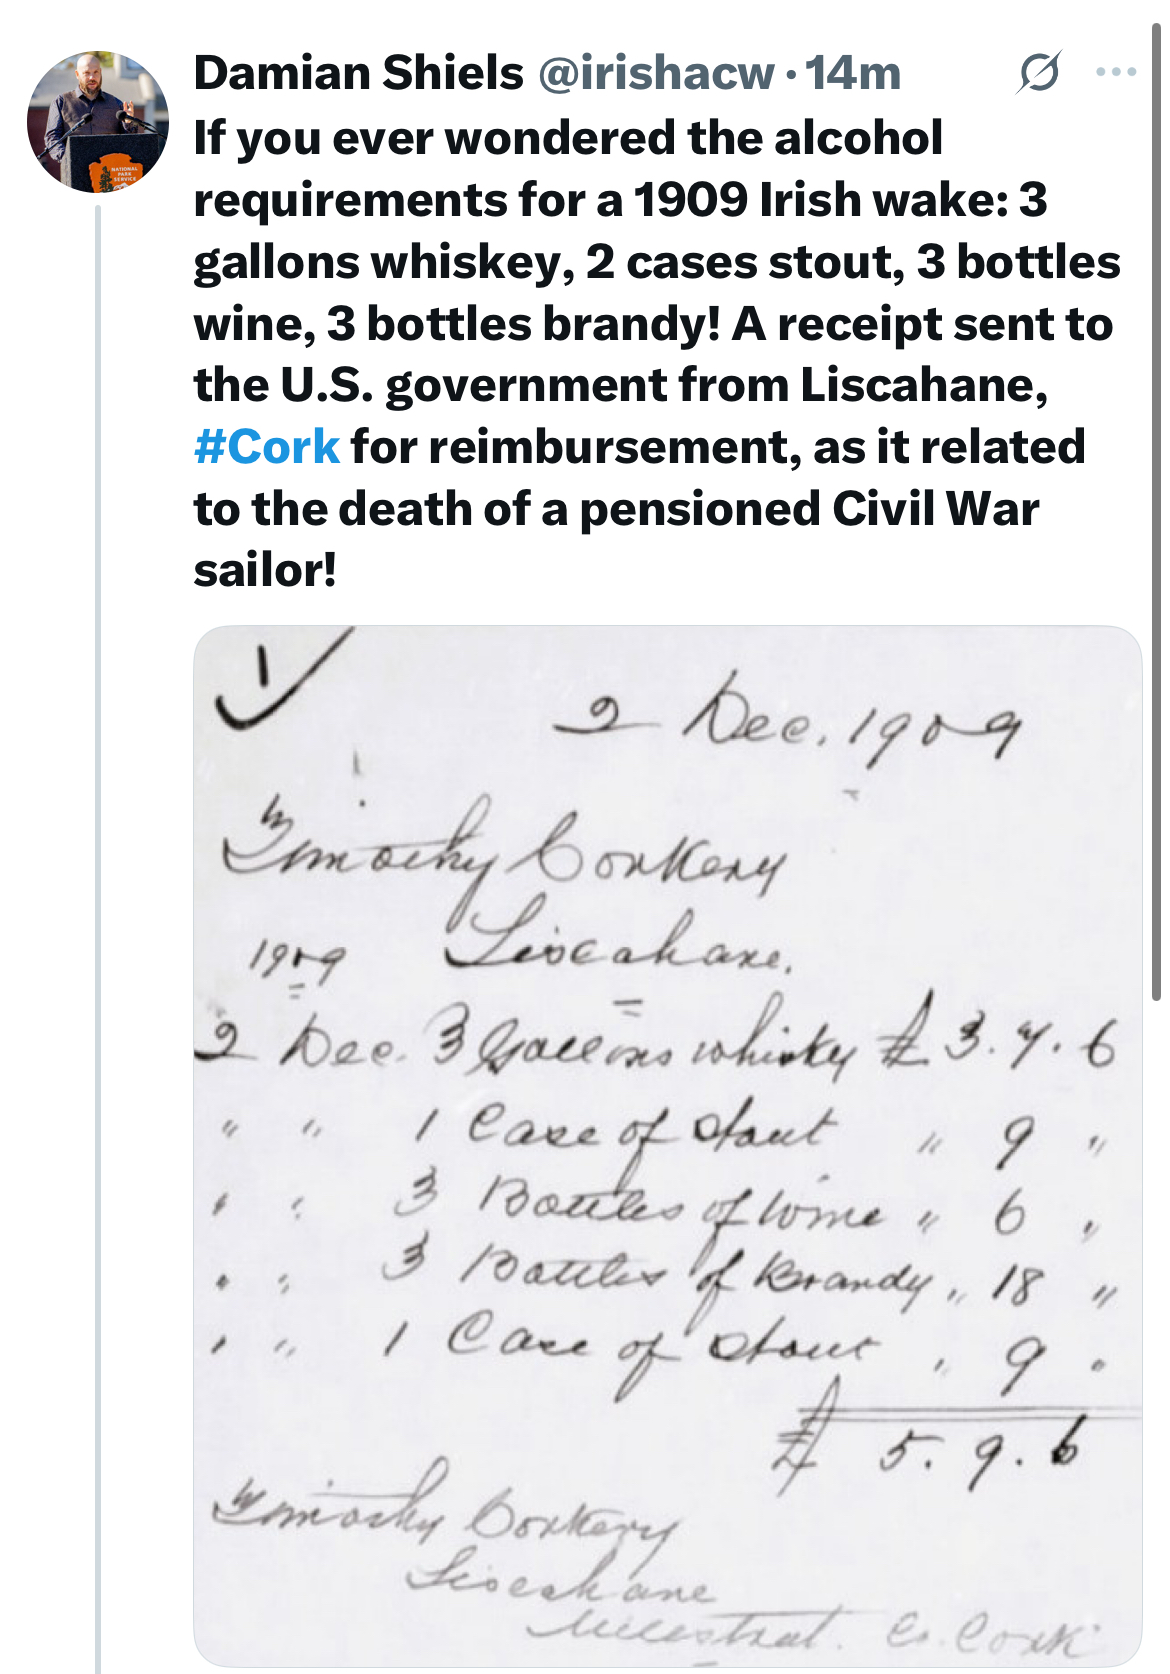 Damian Shiels @irishacw · 14m
If you ever wondered the alcohol
requirements for a 1909 Irish wake: 3
gallons whiskey, 2 cases stout, 3 bottles
wine, 3 bottles brandy! A receipt sent to
the U.S. government from Liscahane,
#Cork for reimbursement, as it related
to the death of a pensioned Civil War
sailor!
NATIONAL
PARK
SERVICE
2 Dec. 1909
Timothy Corkery
1909 Liscahane.
2 Dec. 3 Gallons whisky £ 3. 7. 6
" " 1 Case of Stout " 9 "
" " 3 Bottles of Wine " 6 "
" " 3 Bottles of Brandy " 18 "
" " 1 Case of Stout " 9 "
£ 5. 9. 6
Timothy Corkery
Liscahane
Millstreet. Co. Cork